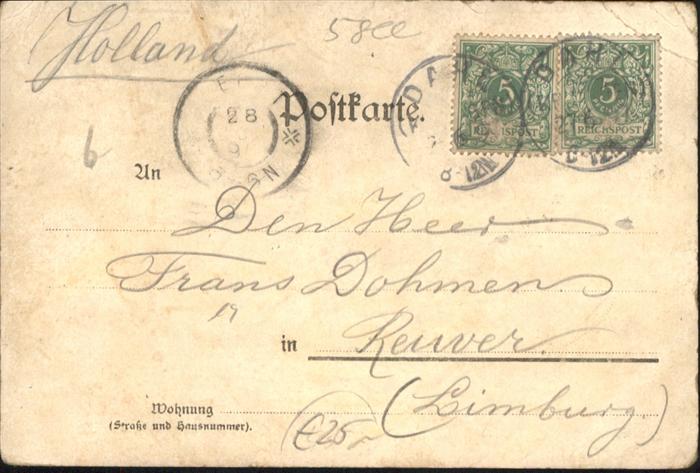 Holland
5
5
REICHSPOST
REICHSPOST
28
Postkarte.
8-12N.
8-12N.
6
An
Den Heer
Frans Dohmen
in Reuver.
(Limburg)
Wohnung
(Straße und Hausnummer).
€25,-